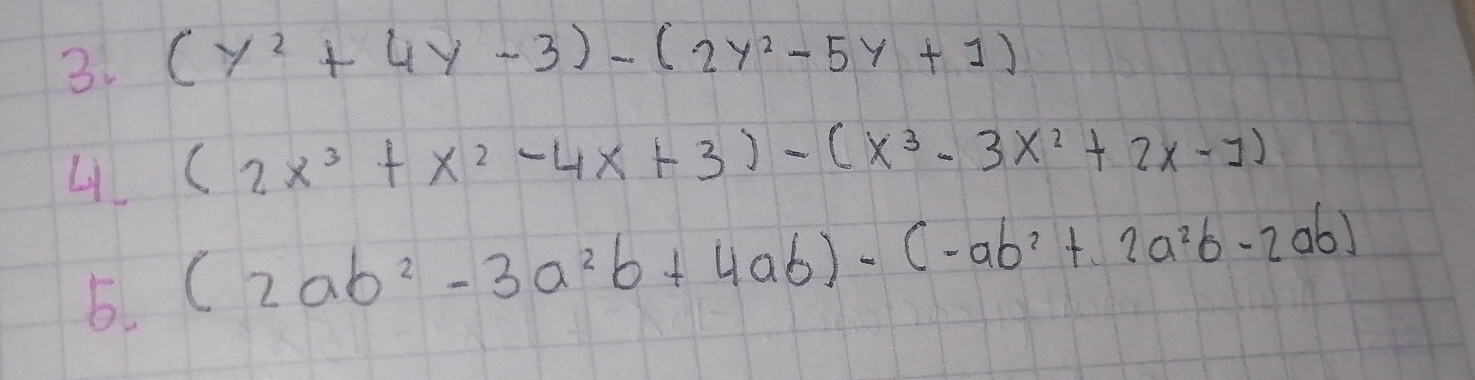 3. (y² + 4y - 3) - (2y² - 5y + 1)
4. (2x³ + x² - 4x + 3) - (x³ - 3x² + 2x - 1)
5. (2ab² - 3a²b + 4ab) - (-ab² + 2a²b - 2ab)